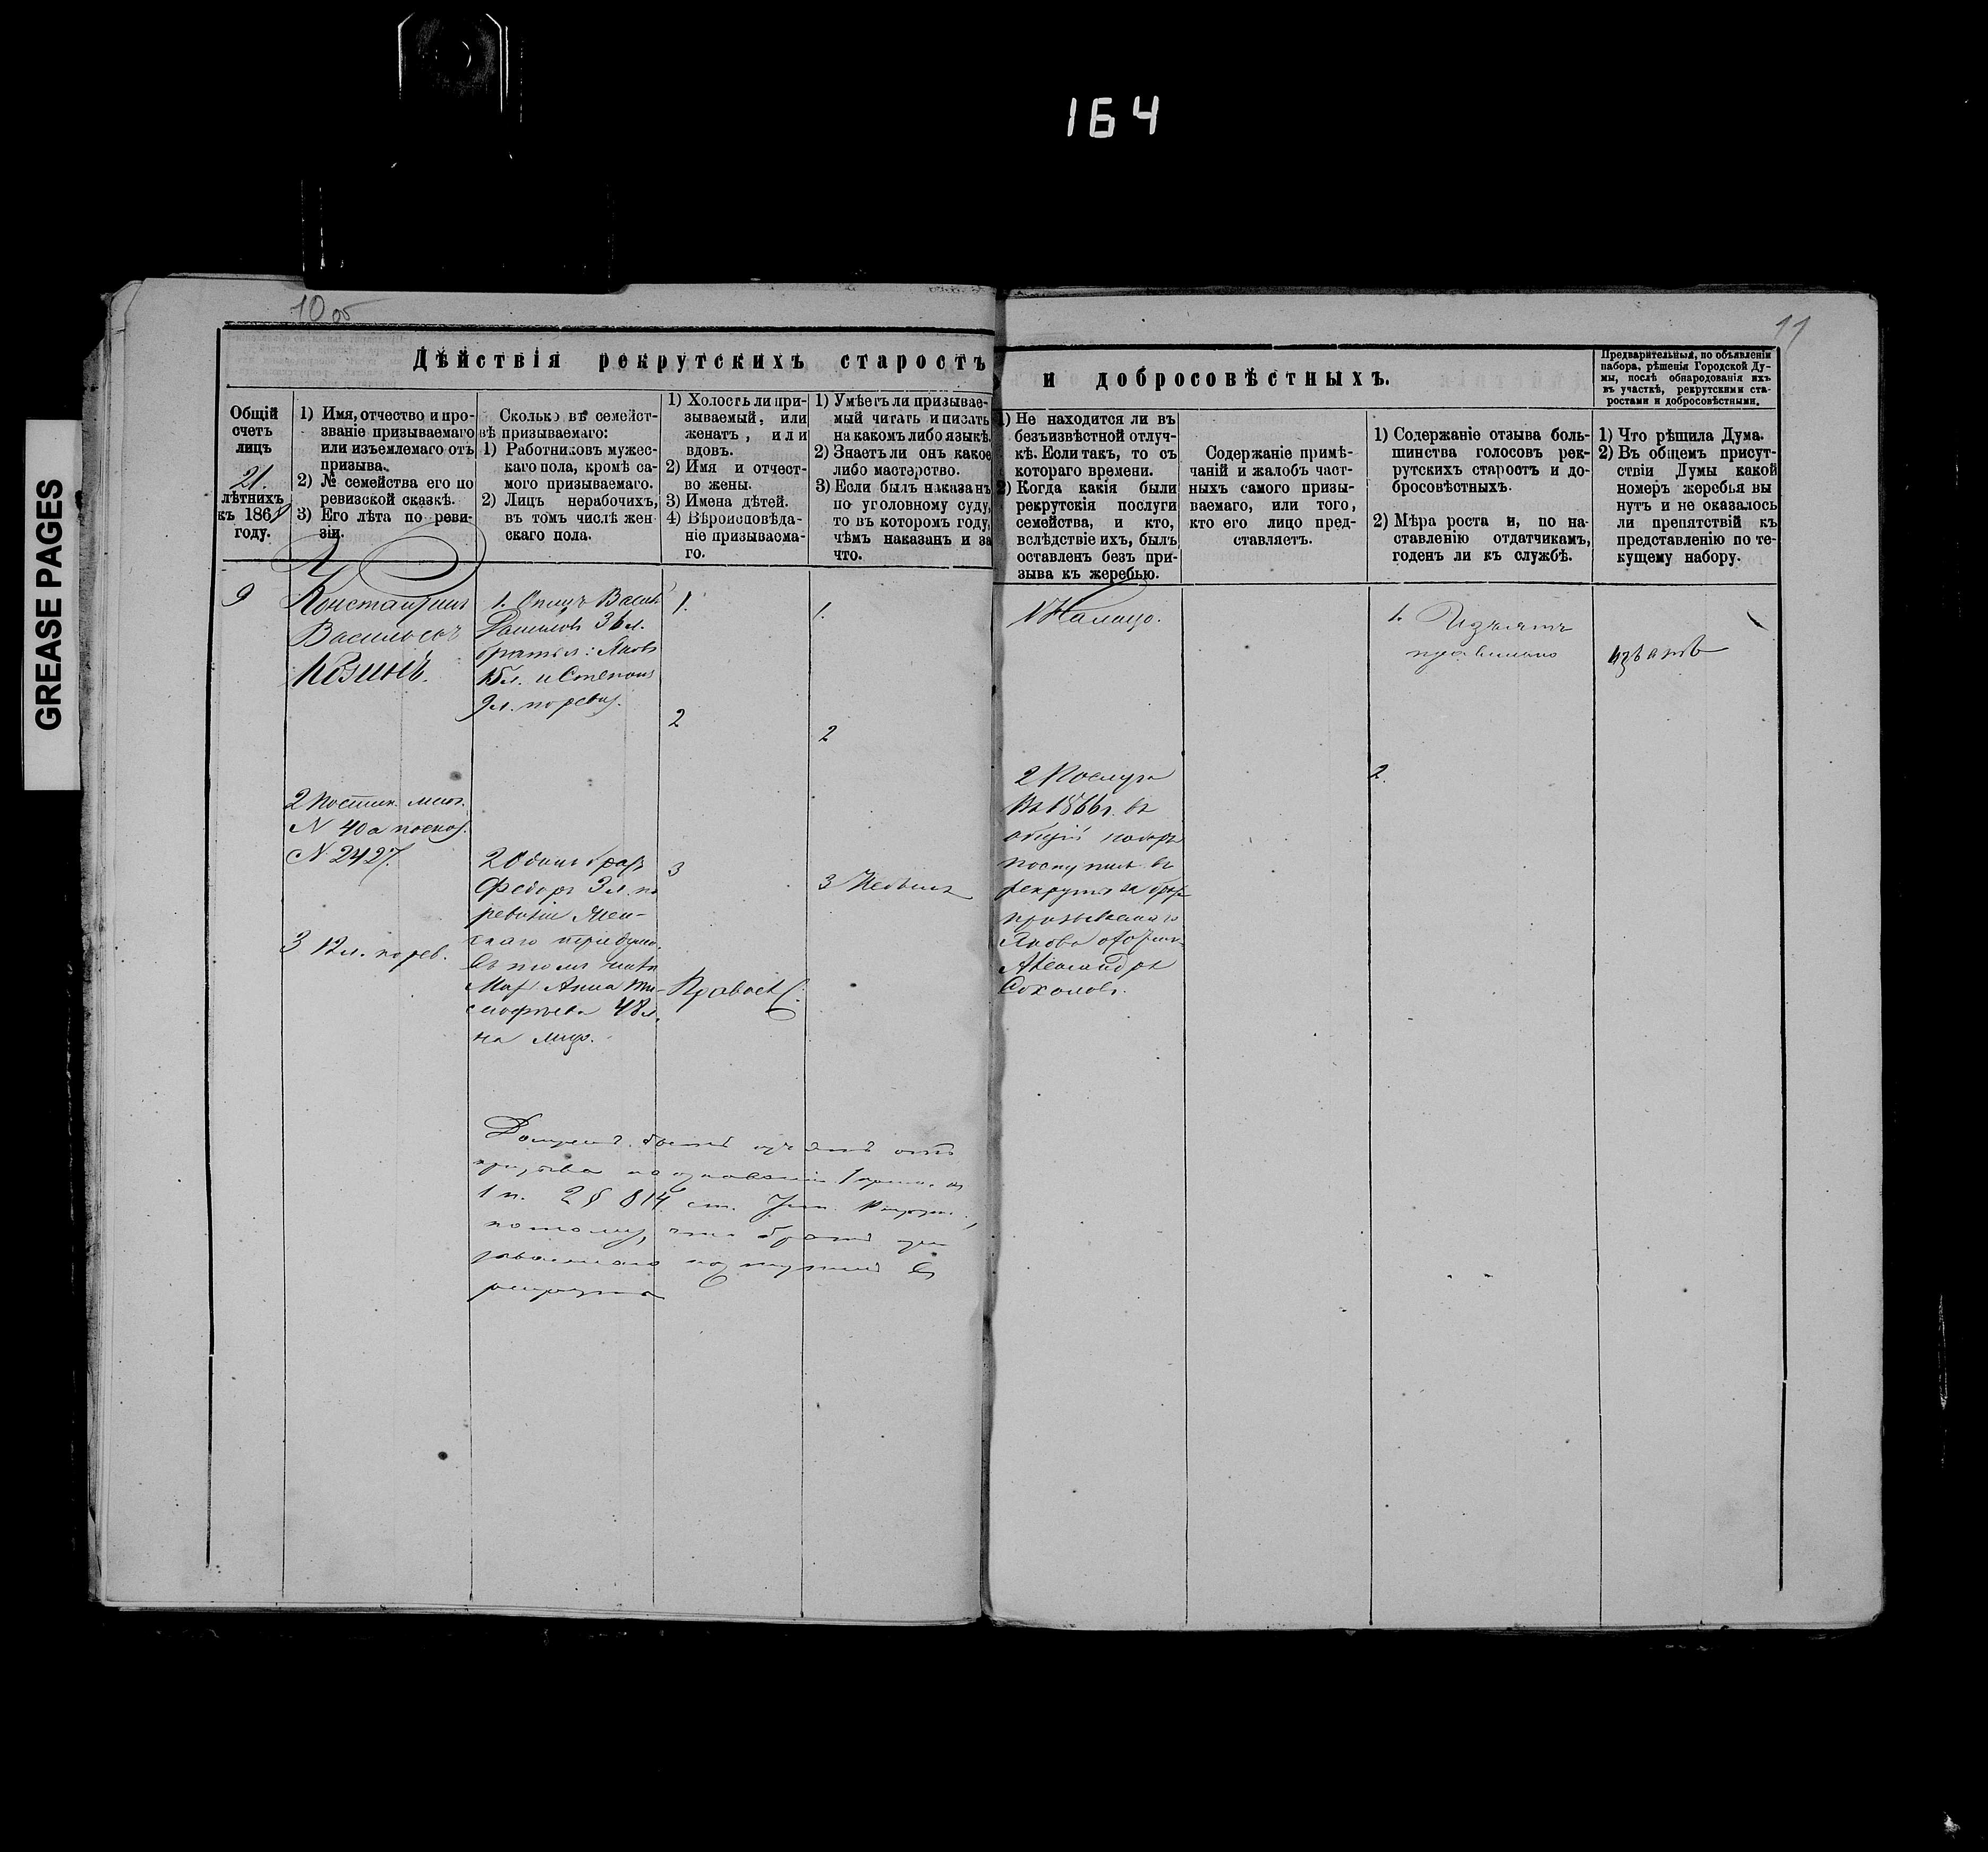 164
GREASE PAGES
10 об
11
Дѣйствія рекрутскихъ старостъ
и добросовѣстныхъ.
Предварительныя, по объявленіи
набора, рѣшенія Городской Ду-
мы, послѣ обнародованія ихъ
въ участкѣ, рекрутскими ста-
ростами и добросовѣстными.
Общій
счетъ
лицъ
21.
лѣтнихъ
къ 186
году.
1) Имя, отчество и про-
званіе призываемаго
или изъемлемаго отъ
призыва.
2) № семейства его по
ревизской сказкѣ.
3) Его лѣта по реви-
зіи.
Сколько въ семейст-
вѣ призываемаго:
1) Работниковъ мужес-
каго пола, кромѣ са-
мого призываемаго.
2) Лицъ нерабочихъ,
въ томъ числѣ жен
скаго пола.
1) Холостъ ли при-
зываемый, или
женатъ, или
вдовъ.
2) Имя и отчест-
во жены.
3) Имена дѣтей.
4) Вѣроисповѣда-
ніе призываема-
го.
1) Умѣетъ ли призывае-
мый читать и писать
на какомъ либо языкѣ.
2) Знаетъ ли онъ какое
либо мастерство.
3) Если былъ наказанъ
по уголовному суду,
то въ которомъ году,
чѣмъ наказанъ и за
что.
1) Не находится ли въ
безъизвѣстной отлуч-
кѣ. Если такъ, то съ
котораго времени.
2) Когда какія были
рекрутскія послуги
семейства, и кто,
вслѣдствіе ихъ, былъ
оставленъ безъ при-
зыва къ жеребью.
Содержаніе примѣ-
чаній и жалобъ част-
ныхъ самого призы-
ваемаго, или того,
кто его лицо пред-
ставляетъ.
1) Содержаніе отзыва боль-
шинства голосовъ рек-
рутскихъ старостъ и до-
бросовѣстныхъ.
2) Мѣра роста и, по на-
ставленію отдатчикамъ,
годенъ ли къ службѣ.
1) Что рѣшила Дума.
2) Въ общемъ присут-
ствіи Думы какой
номеръ жеребья вы
нутъ и не оказалось
ли препятствій къ
представленію по те-
кущему набору.
9
Константинъ
Васильевъ
Козинъ.
№ 40
№ 2427.
3 12 л. по рев.
1. Отецъ Васил
36 л.
братья: Яковъ
15 л. и Степанъ
9 л. по ревиз.
Федоръ 3 л. по
ревизіи
Анна Ти-
мофѣева 48 л.
на лицо.
1.
2
3
Правосл.
1.
2
3 Небылъ
1 Налицо.
2 Послуга
въ 1866 г. въ
общій наборъ
поступилъ въ
рекруты за
призываемаго
Якова
Александръ
Соколовъ.
1. Изъятъ
правильно
2.
изъятъ
отъ
призыва по основанію
1 п. 2 § 814 ст. Уст. Рекрут.,
потому, что братъ при
зываемаго поступилъ въ
рекруты